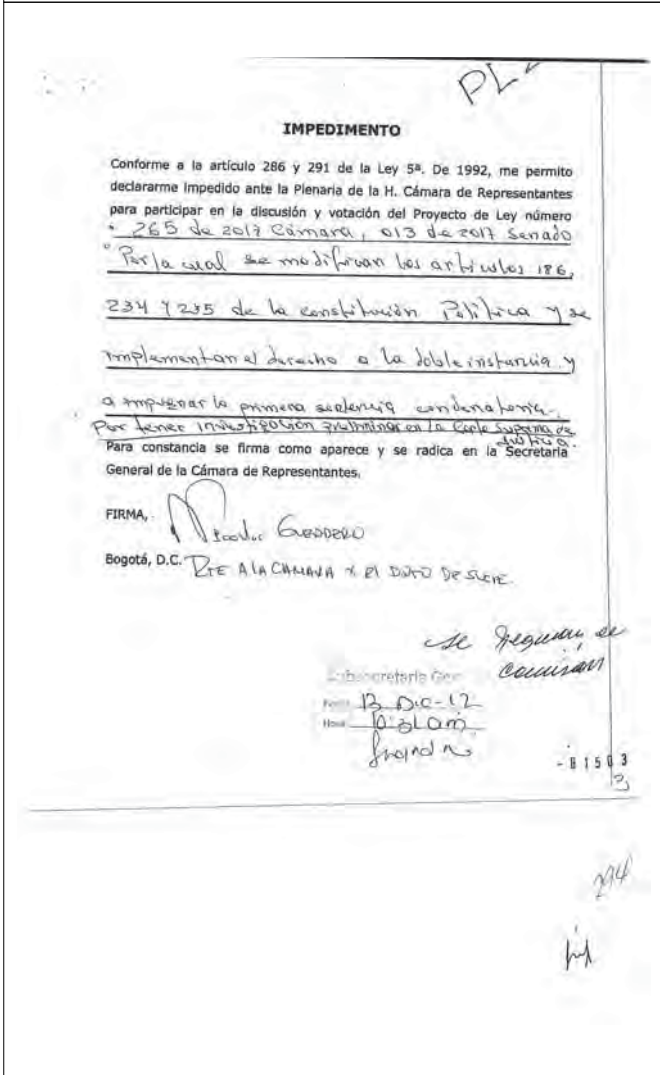 PL
IMPEDIMENTO
Conforme a la artículo 286 y 291 de la Ley 5ª. De 1992, me permito
declararme impedido ante la Plenaria de la H. Cámara de Representantes
para participar en la discusión y votación del Proyecto de Ley número
265 de 2017 Cámara, 013 de 2017 Senado
"Por la cual se modifican los artículos 186,
234 y 235 de la constitución Política y se
implementan el derecho a la doble instancia y
a impugnar la primera sentencia condenatoria.
Por tener investigación preliminar en la Corte Suprema de
Justicia.
Para constancia se firma como aparece y se radica en la Secretaría
General de la Cámara de Representantes.
FIRMA,
GUERRERO
Bogotá, D.C. RTE A LA CAMARA X El DPTO DE SUCRE.
se
comisión
Subsecretaría Gen
13 Dic-12
- 01503
3
294